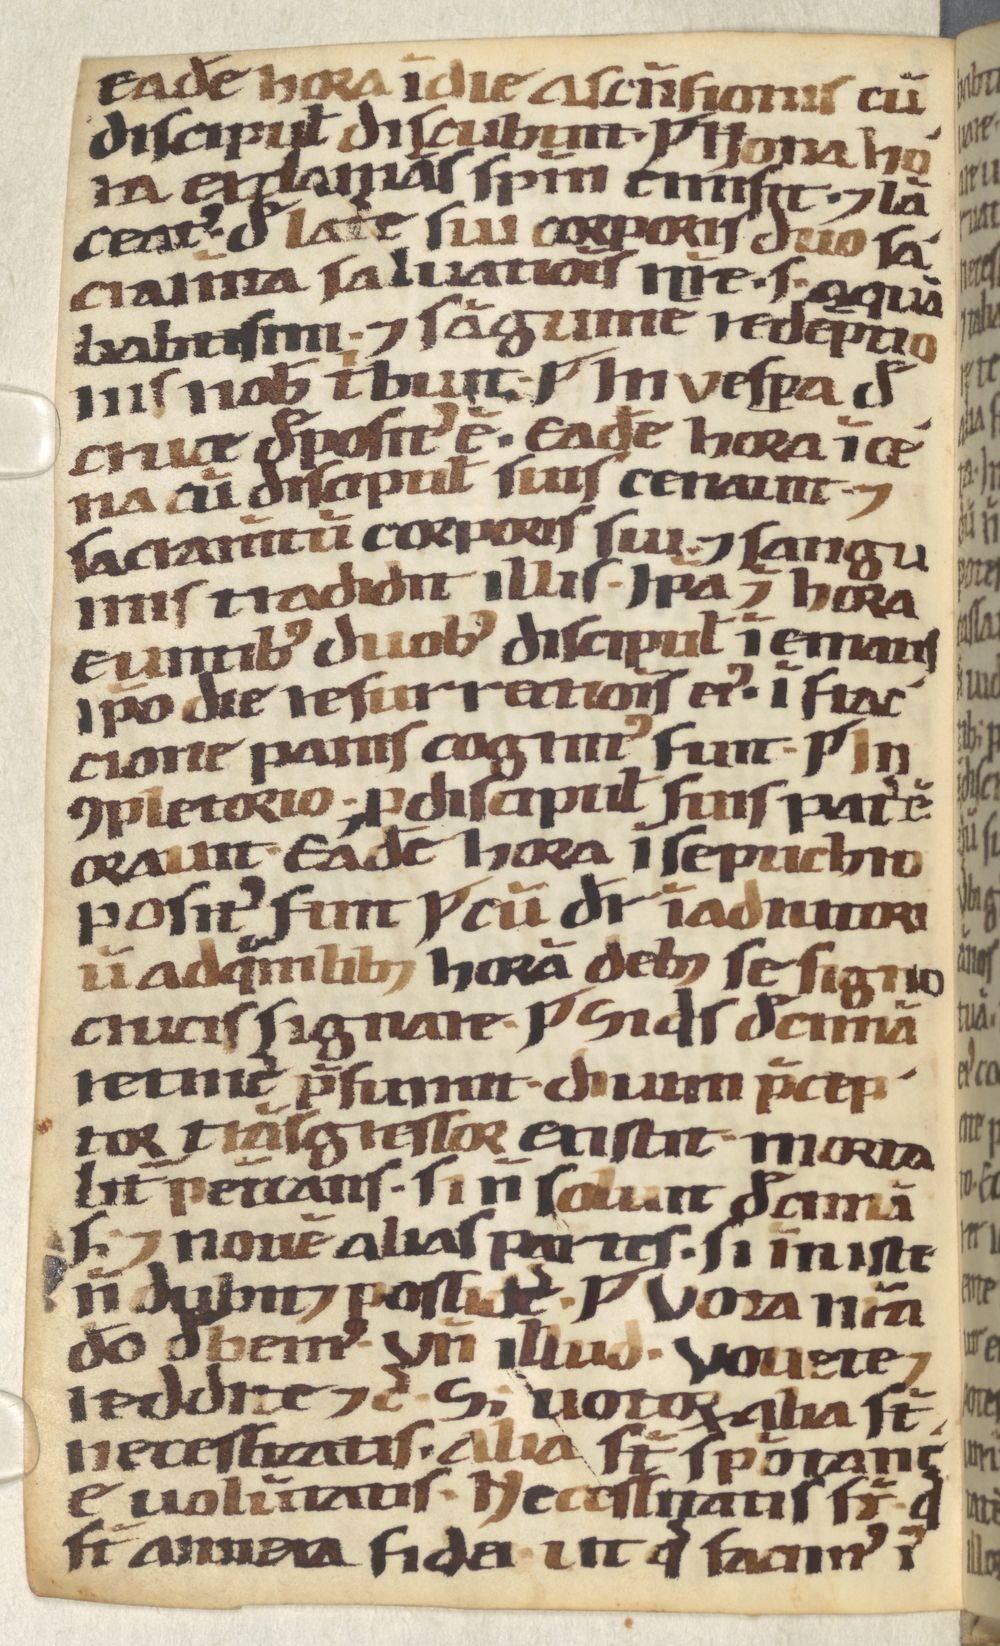 Eadē hora ī die ascēsionis cū
discipul̄ discubuit. ꝑ Nona ho
ra exclamās spm̄ emisit. ⁊ lā
ceatꝰ. đ late̾ sui corporis duo sa
cram̄ta saluatiois nr̄e. s. aquā
babtismi. ⁊ sāguine redēptio
nis nob̄ tbuit. ꝑ In vespa đ
cruce đpositꝰ ē. Eadē hora ī ce
na cū discipul̄ suis cenauit. ⁊
sacram̄tū corporis sui. ⁊ sangu
inis tradidit illis. Ipā ⁊ hora
euntibꝰ duobꝰ discipul̄ ī emaus
ipo die resurrectiois eiꝰ. ī frac
cione panis cognitꝰ fuit. ꝑ In
ꝯpletorio. ꝓ discipul̄ suis patrē
orauit. Eadē hora ī sepuchro
positꝰ fuit ꝑ cū dr̄ ī adiutori
ū ad qm̄libꝫ horā debꝫ se signo
crucis signare. ꝑ Si qis đcimā
retine̾ p̄sumit. diuini p̄cep
tor trāsgressor existit. morta
lit̄ peccans. si n̄ soluit đcimā
s. ⁊ nouē alias partes. si īiuste
n̄ dubitꝫ possidē. ꝑ Vota nr̄a
do đbemꝰ. Vn̄ illud. Vouete ⁊
reddite ⁊c̄. Sꝫ uotoꝝ alia st̄
necessitatis. alia st̄ spōtane
e uolūtatis. Necessitatis st̄. q̄
st̄ annexa fidei. ut q̄ facimꝰ ī